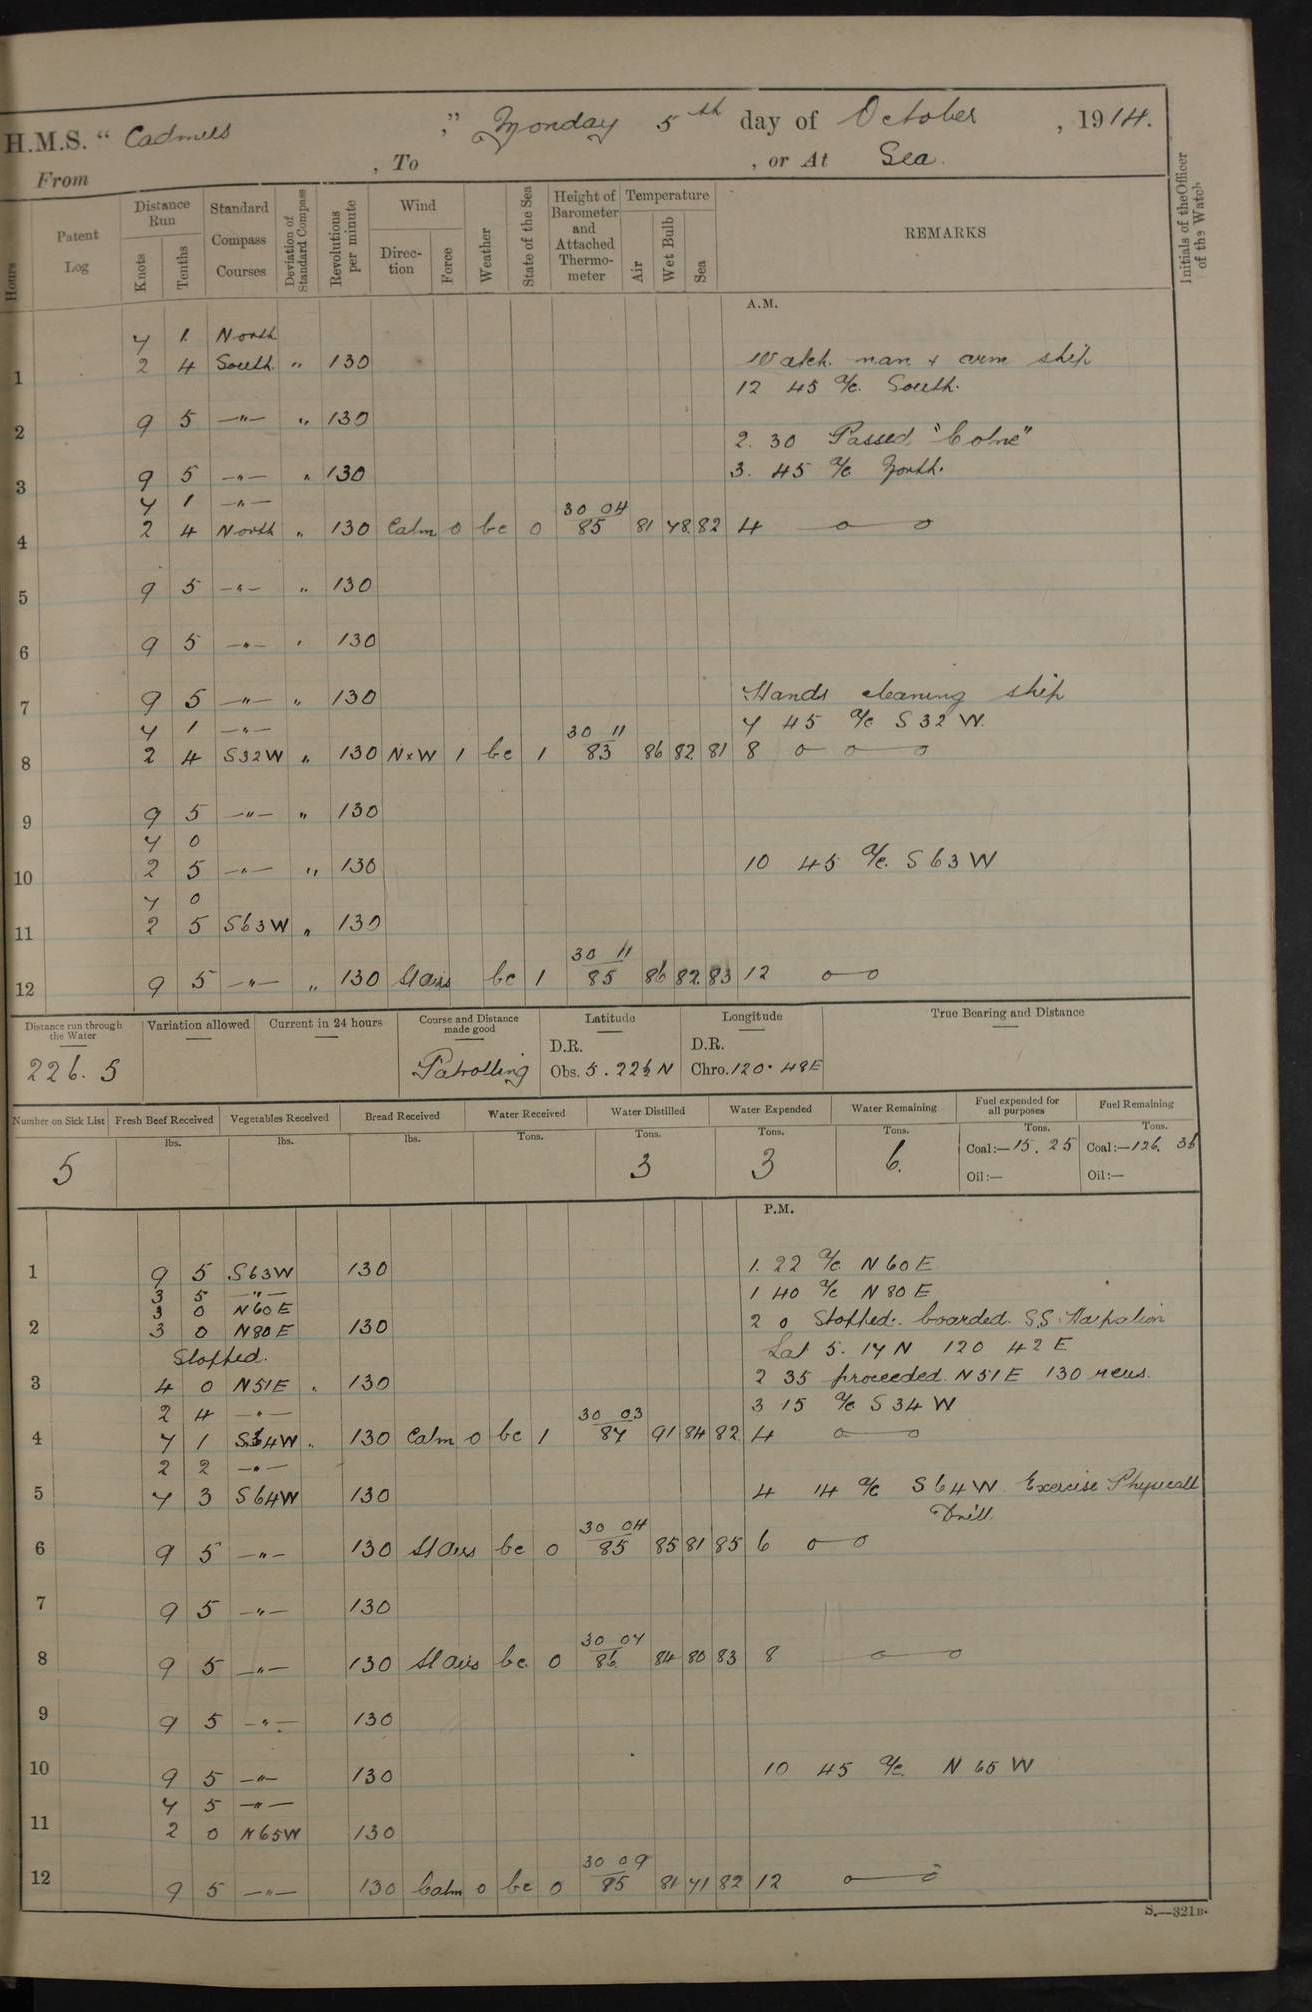 H.M.S. “ Cadmus ,” Monday 5th day of October , 1914.
From , To , or At Sea.
Hours
Patent Log
Distance Run
Knots
Tenths
Standard Compass Courses
Deviation of Standard Compass
Revolutions per minute
Wind
Direction
Force
Weather
State of the Sea
Height of Barometer and Attached Thermometer
Temperature
Air
Wet Bulb
Sea
REMARKS
Initials of the Officer of the Watch
A.M.
7 1 North
1 2 4 South " 130 Watch man & arm ship
12 45 a/c. South.
2 9 5 —"— " 130
2. 30 Passed "Colne"
3 9 5 —"— " 130 3. 45 a/c North.
7 1 —"— 30 04
4 2 4 North " 130 Calm 0 bc 0 85 81 78 82 4 o—o
5 9 5 —"— " 130
6 9 5 —"— " 130
7 9 5 —"— " 130 Hands cleaning ship
7 1 —"— 30 11 7 45 a/c S 32 W.
8 2 4 S32W " 130 NxW 1 bc 1 83 86 82 81 8 o—o—o
9 9 5 —"— " 130
7 0
10 2 5 —"— " 130 10 45 a/c. S 63 W
7 0
11 2 5 S63W " 130
30 11
12 9 5 —"— " 130 Sl airs bc 1 85 86 82 83 12 o—o
Distance run through the Water Variation allowed Current in 24 hours Course and Distance made good Latitude Longitude True Bearing and Distance
D.R. D.R.
226. 5 Patrolling Obs. 5. 22½ N Chro. 120. 48E
Number on Sick List Fresh Beef Received Vegetables Received Bread Received Water Received Water Distilled Water Expended Water Remaining Fuel expended for all purposes Fuel Remaining
lbs. lbs. lbs. Tons. Tons. Tons. Tons. Tons. Tons.
5 3 3 6. Coal:—15. 25 Coal:—126. 36
Oil:— Oil:—
P.M.
1 9 5 S63W 130 1. 22 a/c N 60 E
3 5 —"— 1 40 a/c N 80 E
3 0 N60E
2 3 0 N80E 130 2 0 Stopped. boarded. S.S.
Stopped. Lat 5. 17 N 120 42 E
3 4 0 N51E " 130 2 35 proceeded N 51 E 130 revs.
2 4 —"— 30 03 3 15 a/c S 34 W
4 7 1 S34W " 130 Calm 0 bc 1 87 91 84 82 4 o—o
2 2 —"—
5 7 3 S64W 130 4 14 a/c S 64 W Exercise Physicall
Drill.
30 04
6 9 5 —"— 130 Sl airs bc 0 85 85 81 85 6 o—o
7 9 5 —"— 130
30 07
8 9 5 —"— 130 Sl airs bc. 0 86 84 80 83 8 o—o
9 9 5 —"— 130
10 9 5 —"— 130 10 45 a/c. N 65 W
7 5 —"—
11 2 0 N65W 130
30 09
12 9 5 —"— 130 Calm 0 bc 0 85 81 71 82 12 o—o
S.—321B.